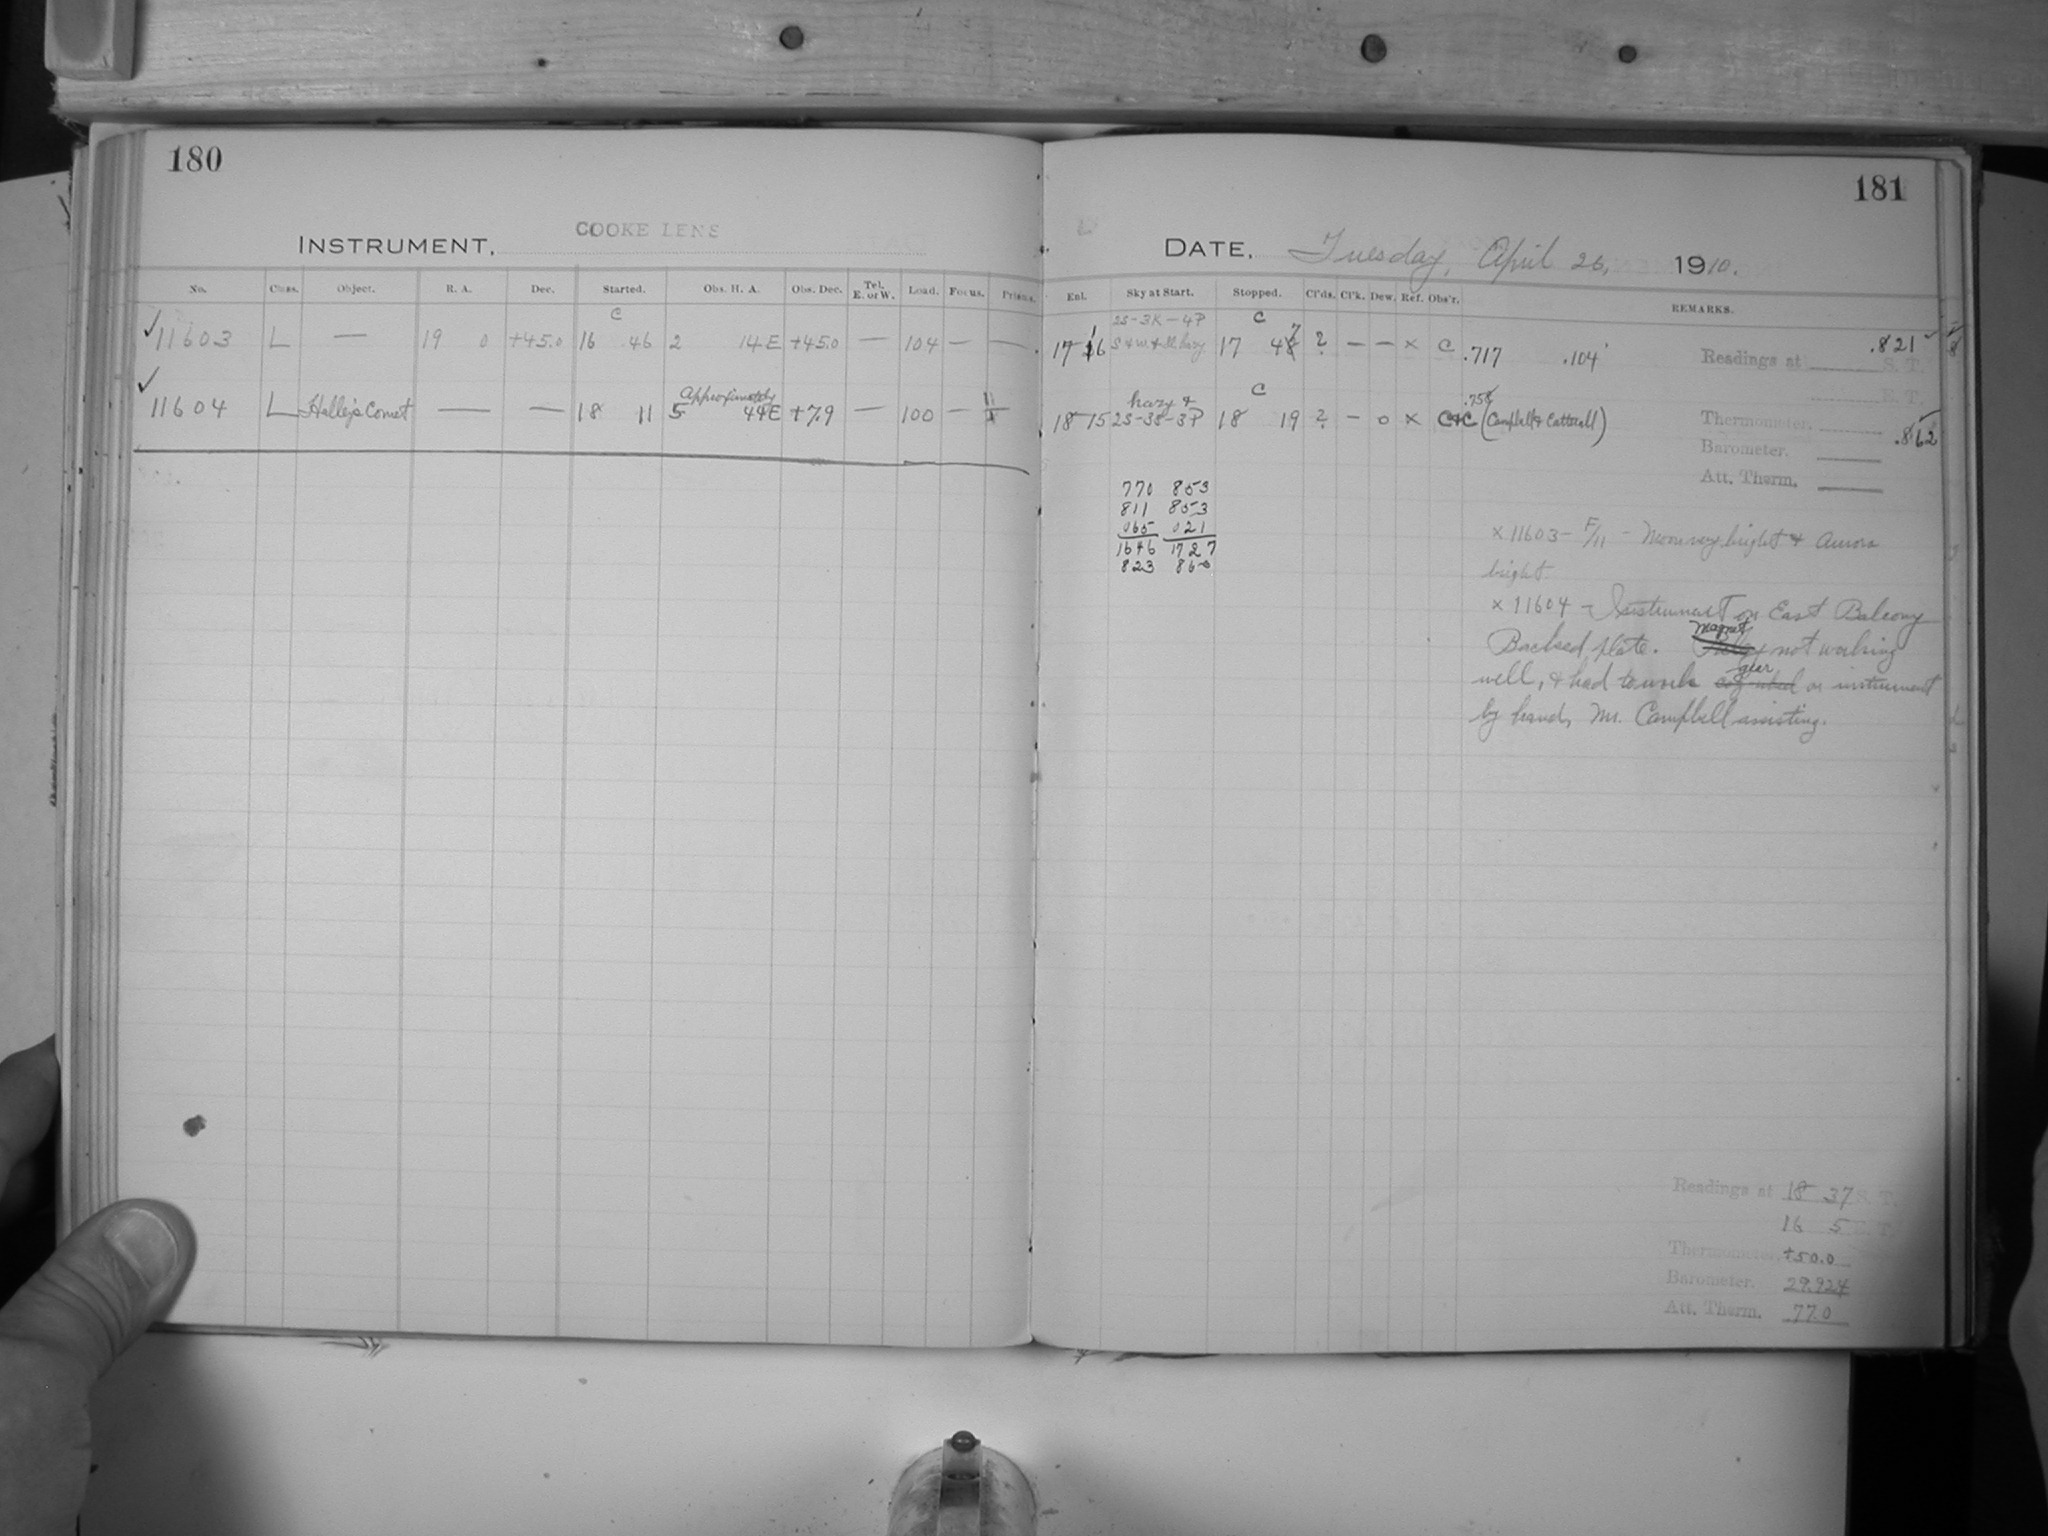 180
INSTRUMENT. COOKE LENS
No. Class. Object. R. A. Dec. Started. Obs. H. A. Obs. Dec. Tel. E. or W. Load. Focus. Prisms.
C
✓ 11603 L — 19 0 +45.0 16 46 2 14 E +45.0 — 104 — —
✓ Approximately
11604 L Halley's Comet — — 18 11 5 44 E +7.9 — 100 —
181
DATE. Tuesday, April 26, 1910.
Enl. Sky at Start. Stopped. Cl'ds. Cl'k. Dew. Ref. Obs'r. REMARKS.
2S-3K-4P C
17 16 S & W & hazy 17 47 ? — — × C .717 .104 .821 ✓
Readings at S. T.
E. T.
hazy & C
18 15 2S-3S-3P 18 19 ? - 0 × C&C (Campbell & Catterall) .862
Thermometer.
Barometer.
Att. Therm.
770 853
811 853
065 021
1646 1727
823 860
× 11603 - F/11 - Moon very bright & Aurora
bright.
× 11604 - Instrument on East Balcony
Backed plate. Magnet not working
well, & had to work gear on instrument
by hand, Mr. Campbell assisting.
Readings at 18 37 S. T.
16 5 E. T.
Thermometer. +50.0
Barometer. 29.924
Att. Therm. 77.0